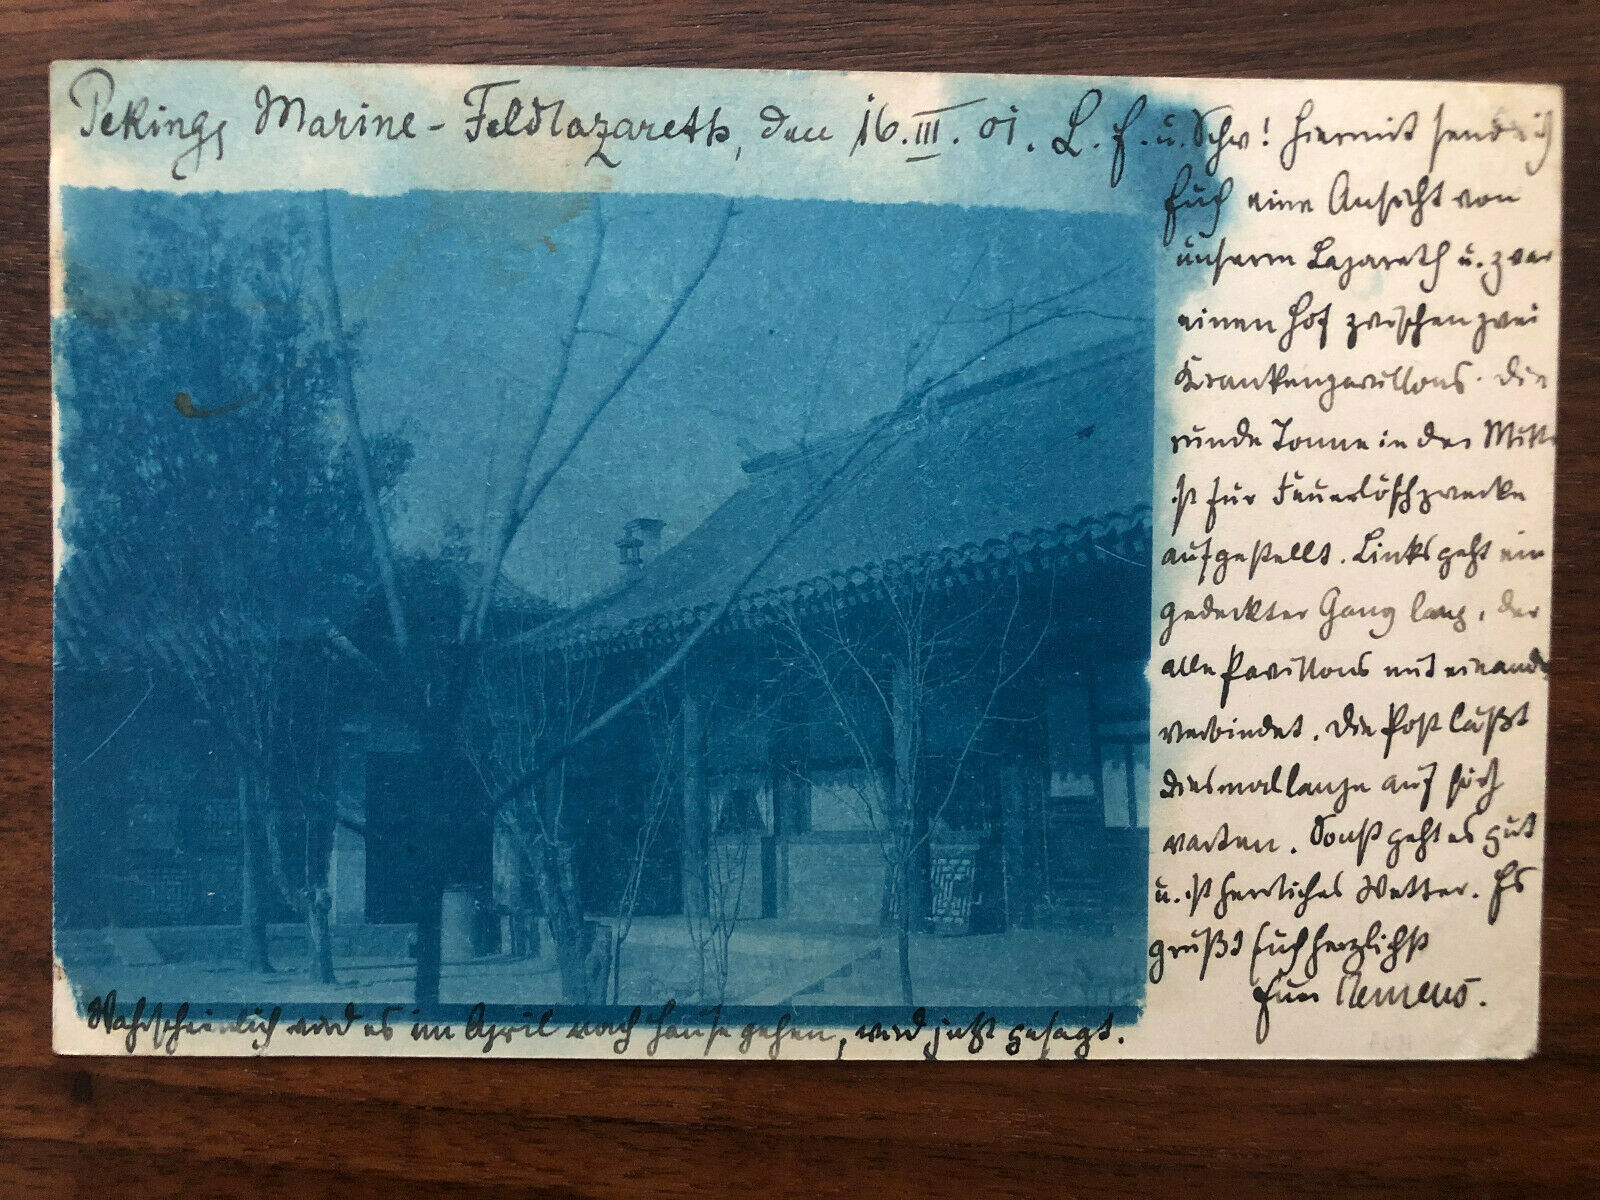 Peking, Marine-Feldlazareth, den 16.III.01. L. E. u. Schw! Hiermit sende ich
Euch eine Ansicht von
unserm Lazareth u. zwar
einen Hof zwischen zwei
Krankenpavillons. Die
runde Tonne in der Mitte
ist für Feuerlöschzwecke
aufgestellt. Links geht ein
gedeckter Gang lang, der
alle Pavillons mit einander
verbindet. Die Post läßt
diesmal lange auf sich
warten. Sonst geht es gut
u. ist herrliches Wetter. Es
grüßt Euch herzlichst
Euer Clemens.
Wahrscheinlich wird es im April nach Hause gehen, wird jetzt gesagt.